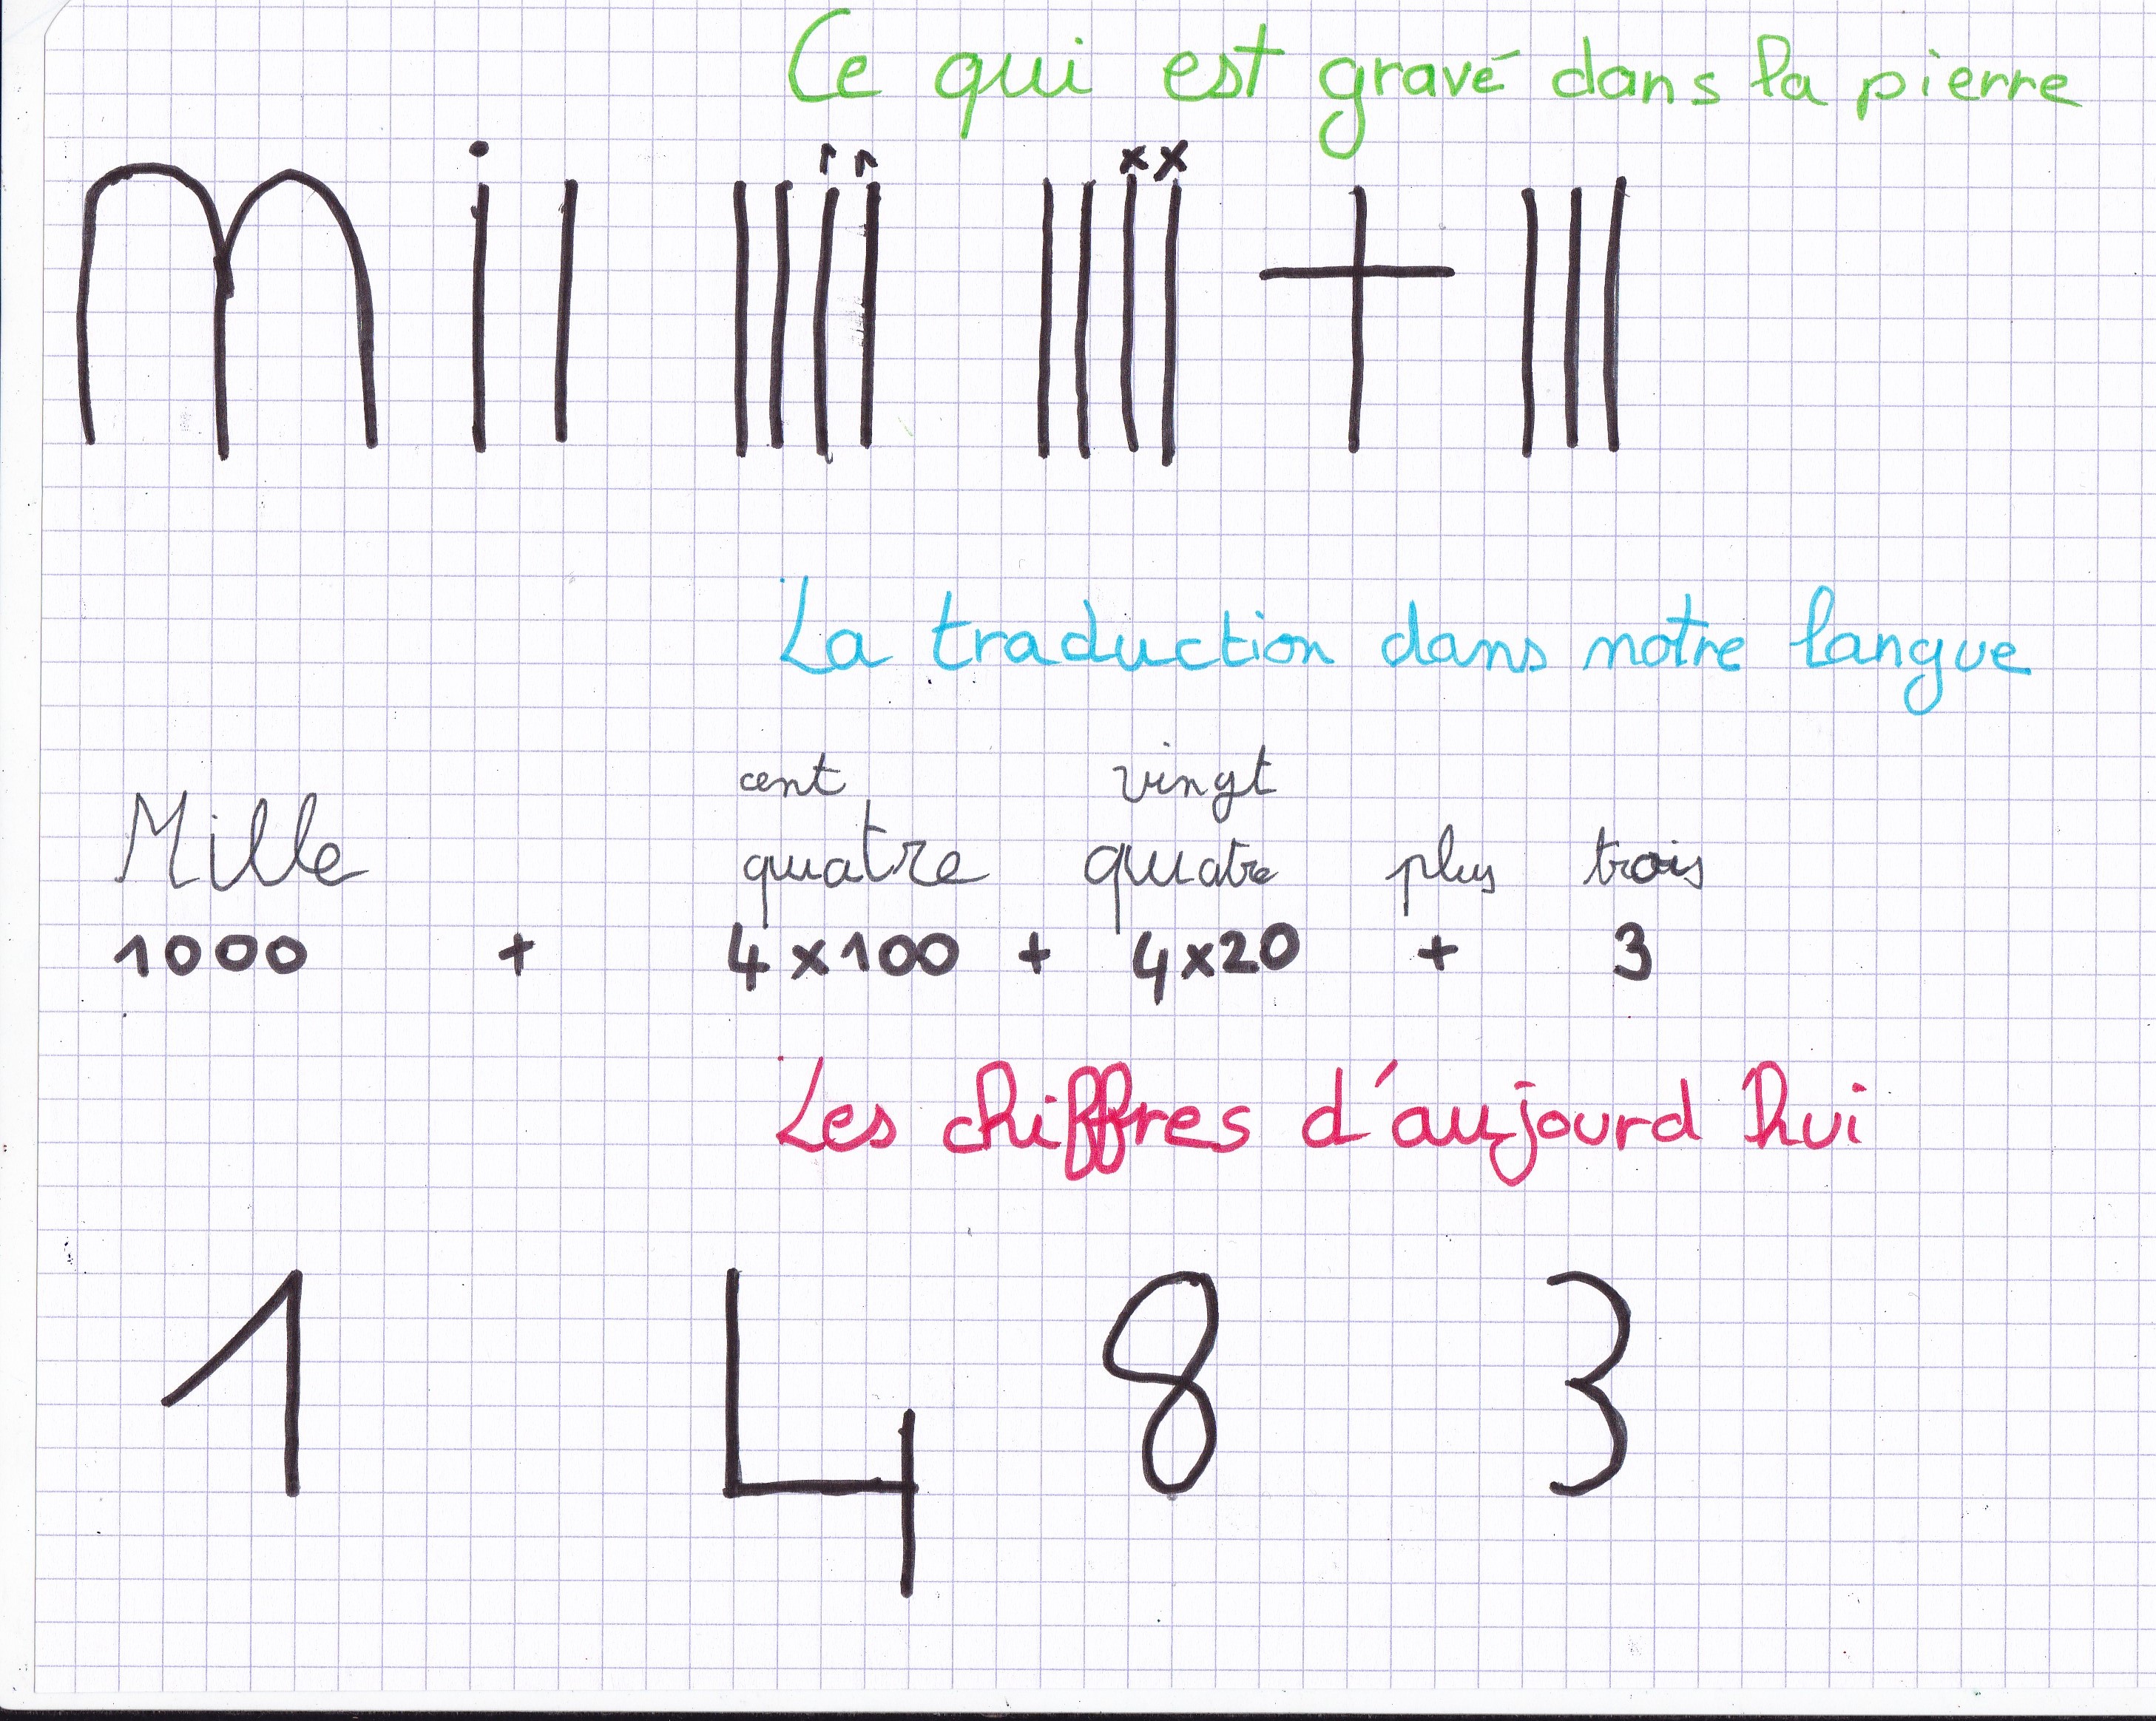 Ce qui est gravé dans la pierre
mil IIII IIII + III
xx
La traduction dans notre langue
cent vingt
Mille quatre quatre plus trois
1000 + 4x100 + 4x20 + 3
Les chiffres d'aujourd'hui
1 4 8 3